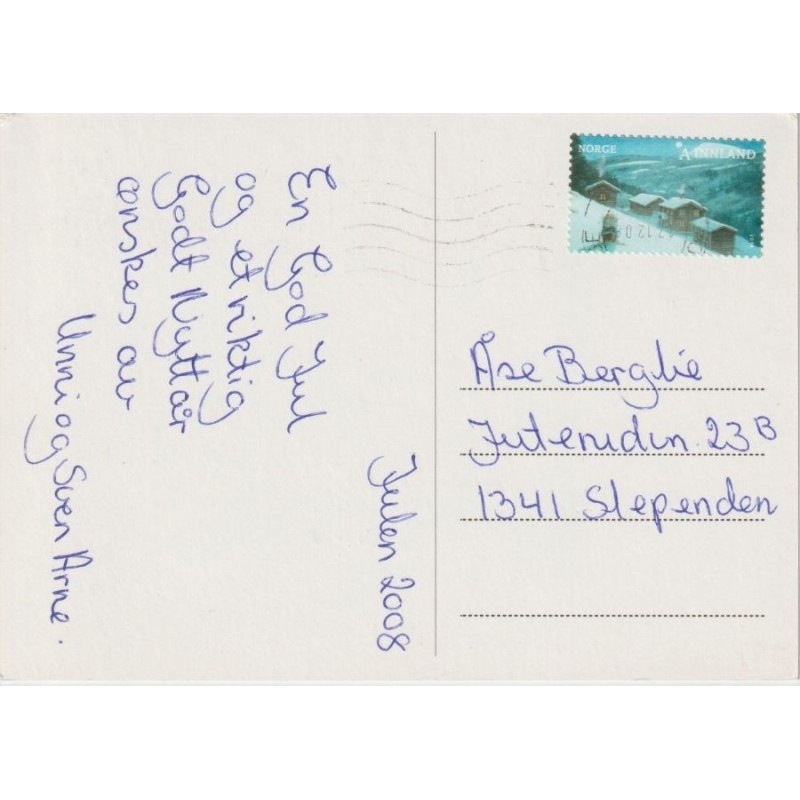 Julen 2008
En God Jul
og et riktig
Godt Nyttår
ønskes av
Unni og Sven Arne.
NORGE
A INNLAND
17.12.08
Åse Berglie
23B
1341 Slependen